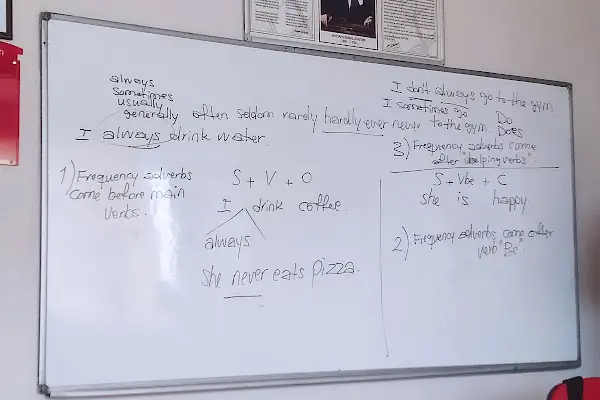 always
sometimes
usually
generally often seldom rarely hardly ever never
I always drink water.
1) Frequency adverbs
come before main
verbs.
S + V + O
I drink coffee.
always
She never eats pizza.
I don't always go to the gym.
I sometimes go to the gym.
Do
Does
3) Frequency adverbs come
after "helping verbs"
S + Vbe + C
she is happy.
2) Frequency adverbs come after
verb "Be".